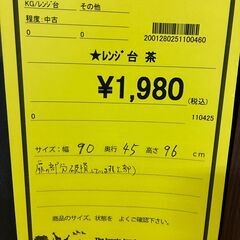 KG/レンジ台 その他
程度:中古
0 0 0 0
2001280251100460
★レンジ台 茶
¥1,980
(税込)
0 110425
サイズ:幅 90 奥行 45 高さ 96 cm
商品のサイズ、状態を よくご確認下さい。